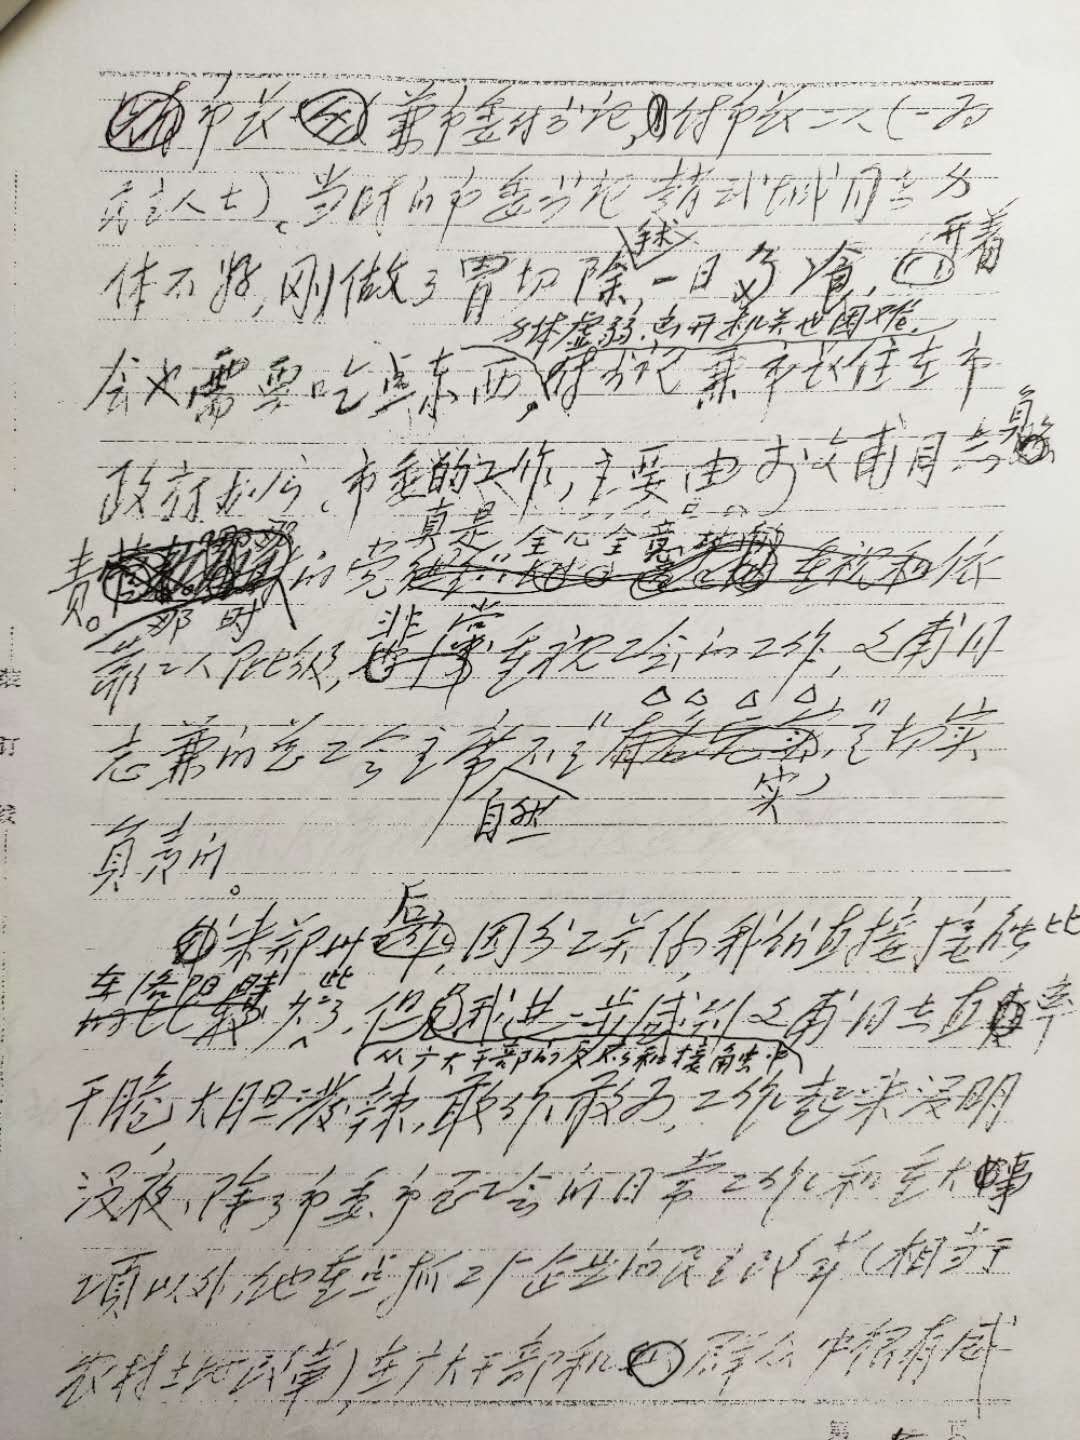 市长(兼市委付书记,付市长二人(一为
民主人士)、当时的市委书记赵武成同志身
手术 开着
体不好,刚做了胃切除,一日多食,
身体虚弱,离开机关也困难。
会也需要吃点东西,付书记兼市长住在市
政府办公、市委的工作,主要由文甫同志负
真是全心全意地
责。的党重视和依
那时
非常
靠工人阶级,重视工会的工作,文甫同
志兼的总工会主席不是“有名无实”是切实
自然
实
负责的。
后
来郑州,因分工关系,我们直接接触比
在洛阳时
此
较少了,但我进一步感到文甫同志直率
(从广大干部的反应和接触中)
干脆,大胆泼辣,敢作敢为,工作起来没明
没夜、除了市委市总工会的日常工作和重大事
项以外,他重点抓工厂企业的民主改革(相当于
农村土地改革)在广大干部和群众中很有威
装
订
线
第 页